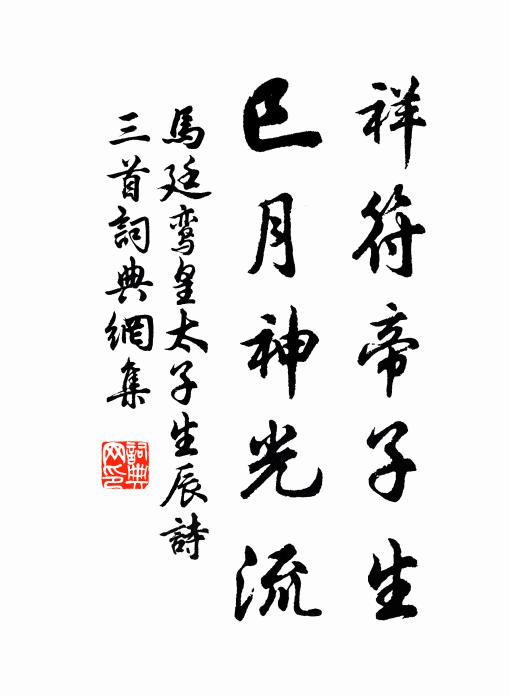 祥符帝子生
巳月神光流
馬廷鸞皇太子生辰詩
三首詞典網集
詞典
网印